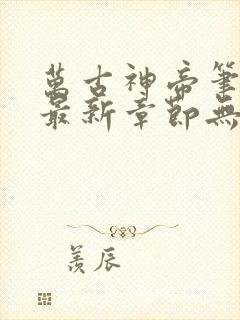 萬古神帝筆
最新章節無
羨辰